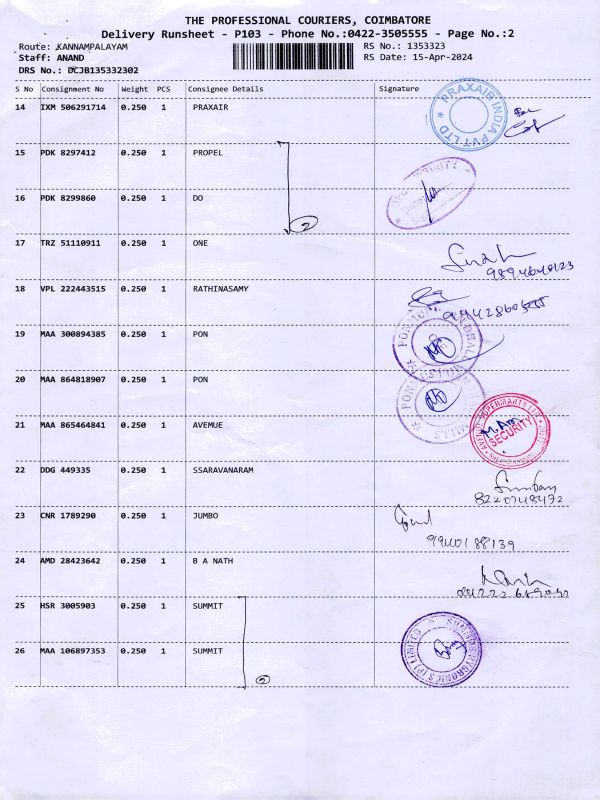 THE PROFESSIONAL COURIERS, COIMBATORE
Delivery Runsheet - P103 - Phone No.:0422-3505555 - Page No.:2
Route: KANNAMPALAYAM RS No.: 1353323
Staff: ANAND RS Date: 15-Apr-2024
DRS No.: DCJB135332302
S No Consignment No Weight PCS Consignee Details Signature
14 IXM 506291714 0.250 1 PRAXAIR
PRAXAIR INDIA PVT LTD
15 PDK 8297412 0.250 1 PROPEL
SECURITY
16 PDK 8299860 0.250 1 DO
2
17 TRZ 51110911 0.250 1 ONE
9894640123
18 VPL 222443515 0.250 1 RATHINASAMY
19 MAA 300894385 0.250 1 PON
20 MAA 864818907 0.250 1 PON
21 MAA 865464841 0.250 1 AVEMUE
SECURITY
22 DDG 449335 0.250 1 SSARAVANARAM
8220748472
23 CNR 1789290 0.250 1 JUMBO
9940188139
24 AMD 28423642 0.250 1 B A NATH
25 HSR 3005903 0.250 1 SUMMIT
26 MAA 106897353 0.250 1 SUMMIT
2